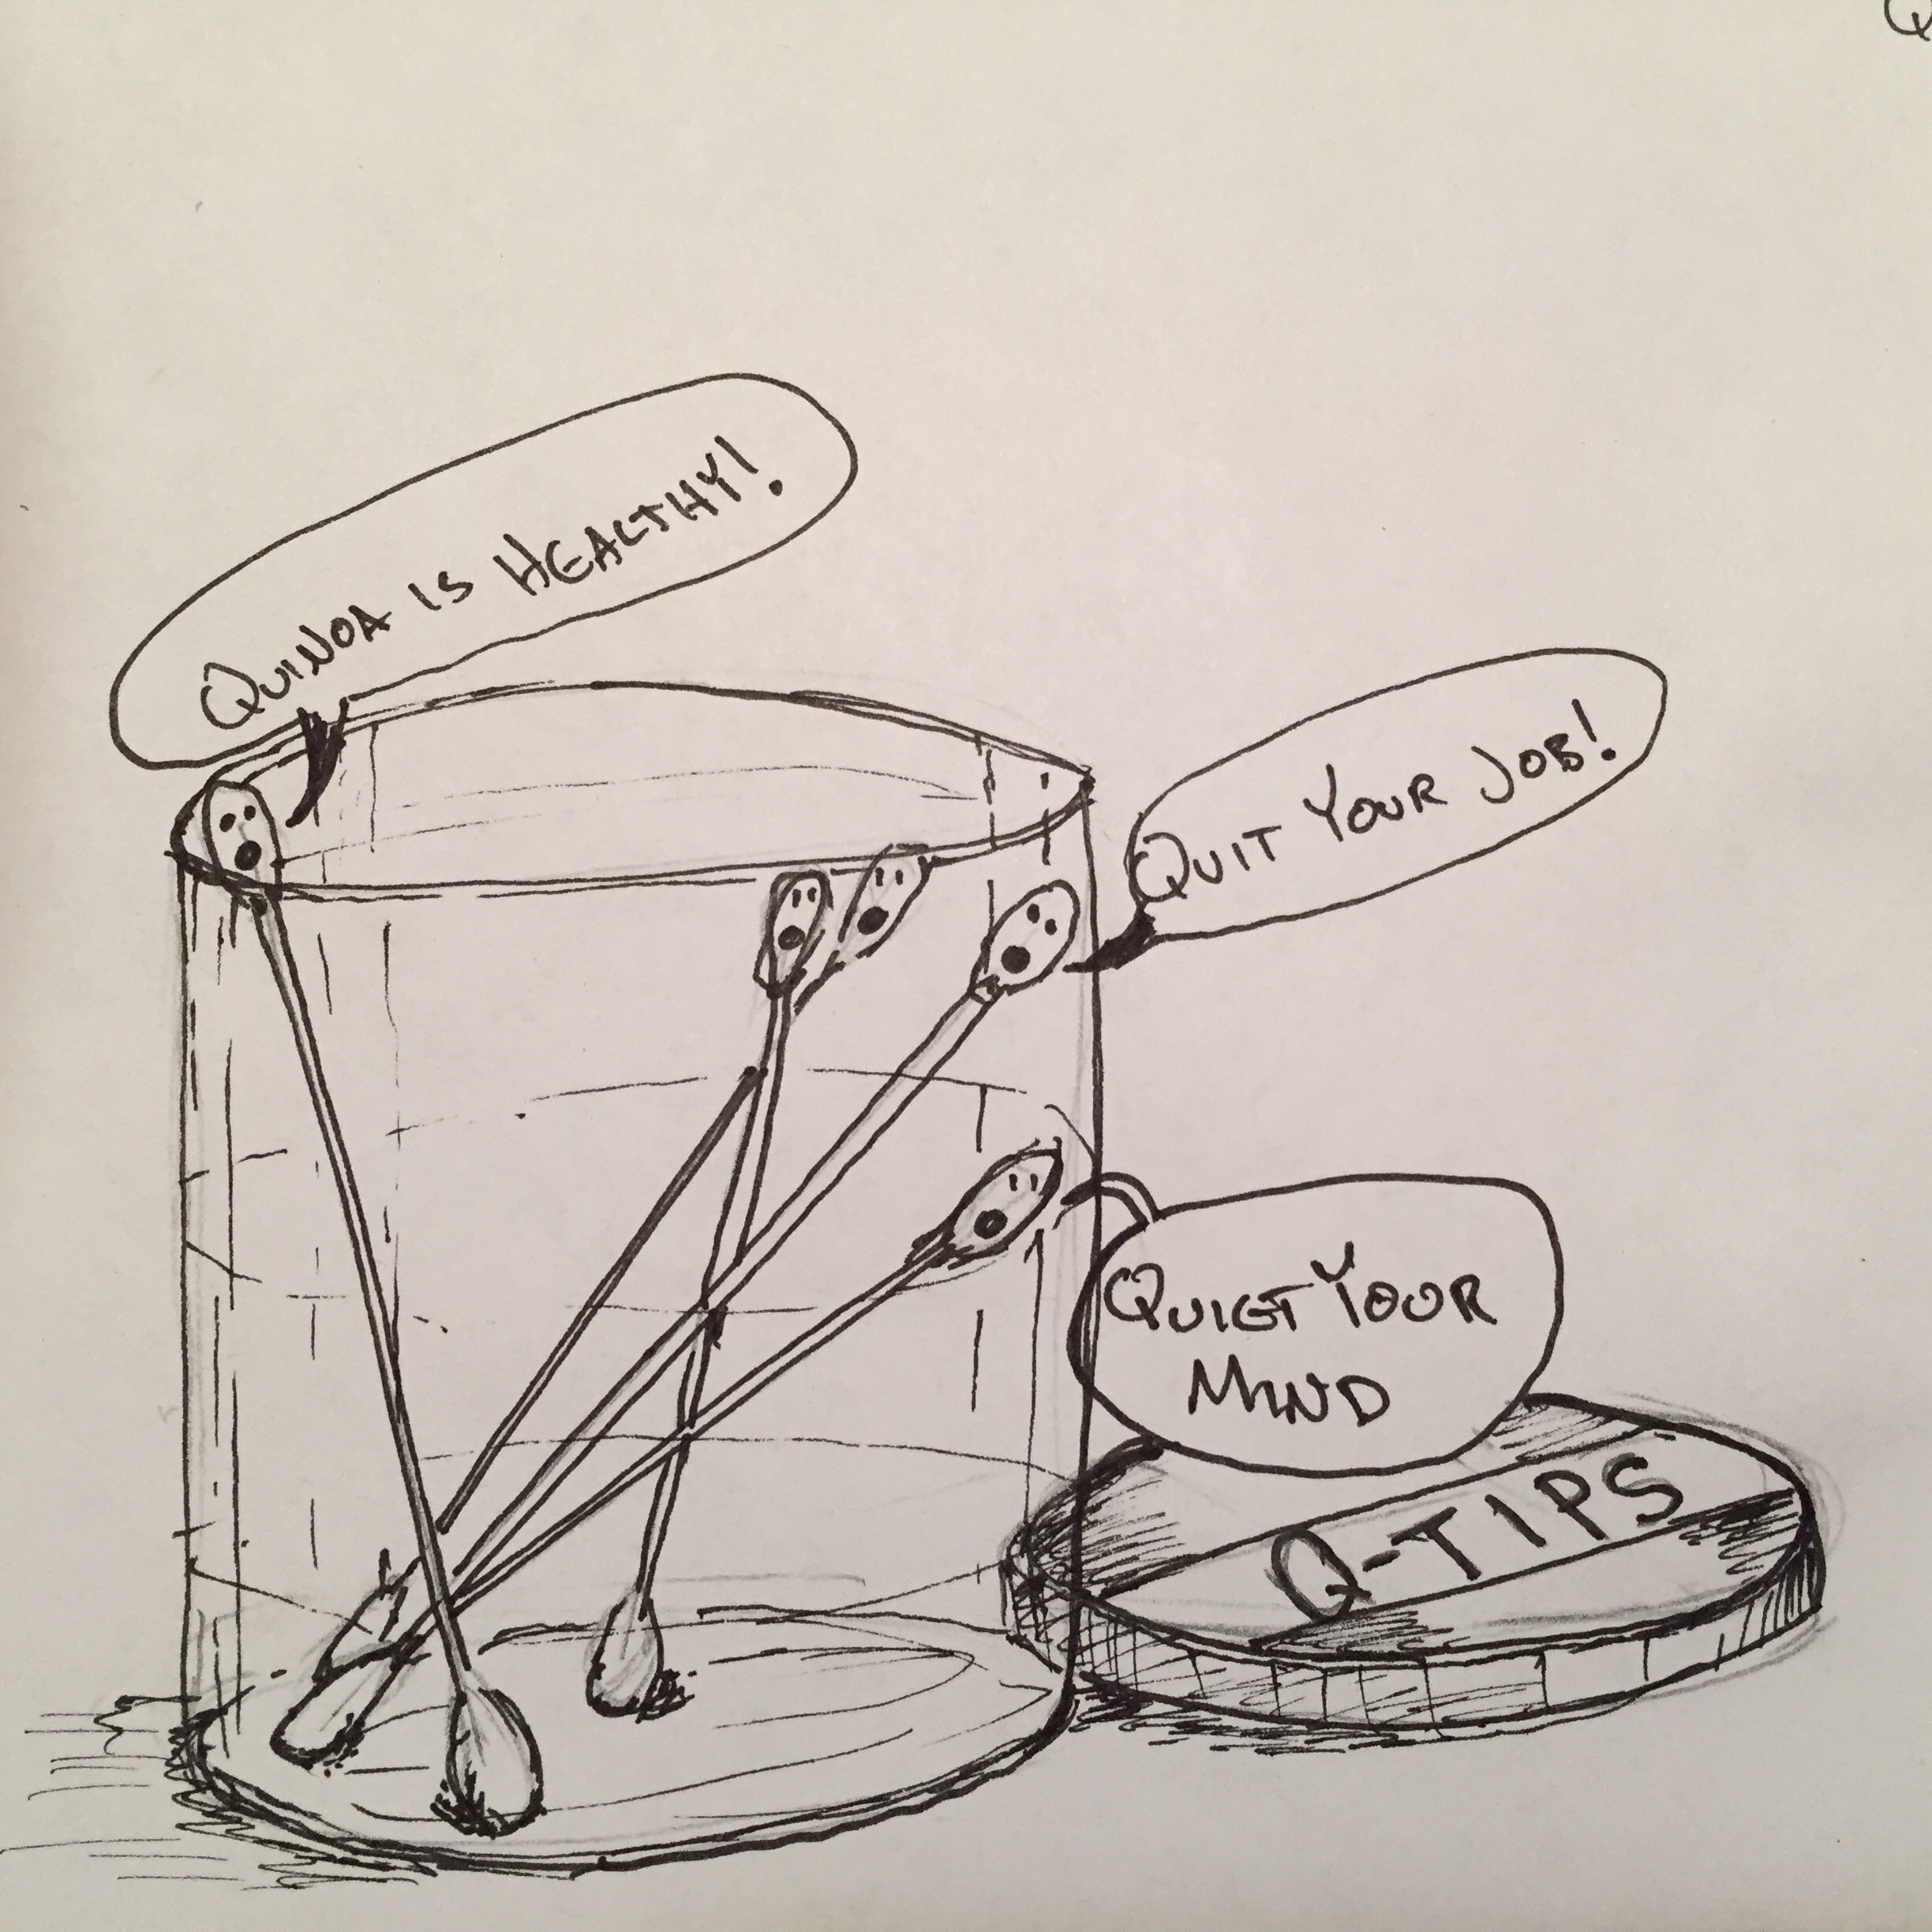 Q
QUINOA IS HEALTHY!
QUIT YOUR JOB!
QUIET YOUR
MIND
Q-TIPS